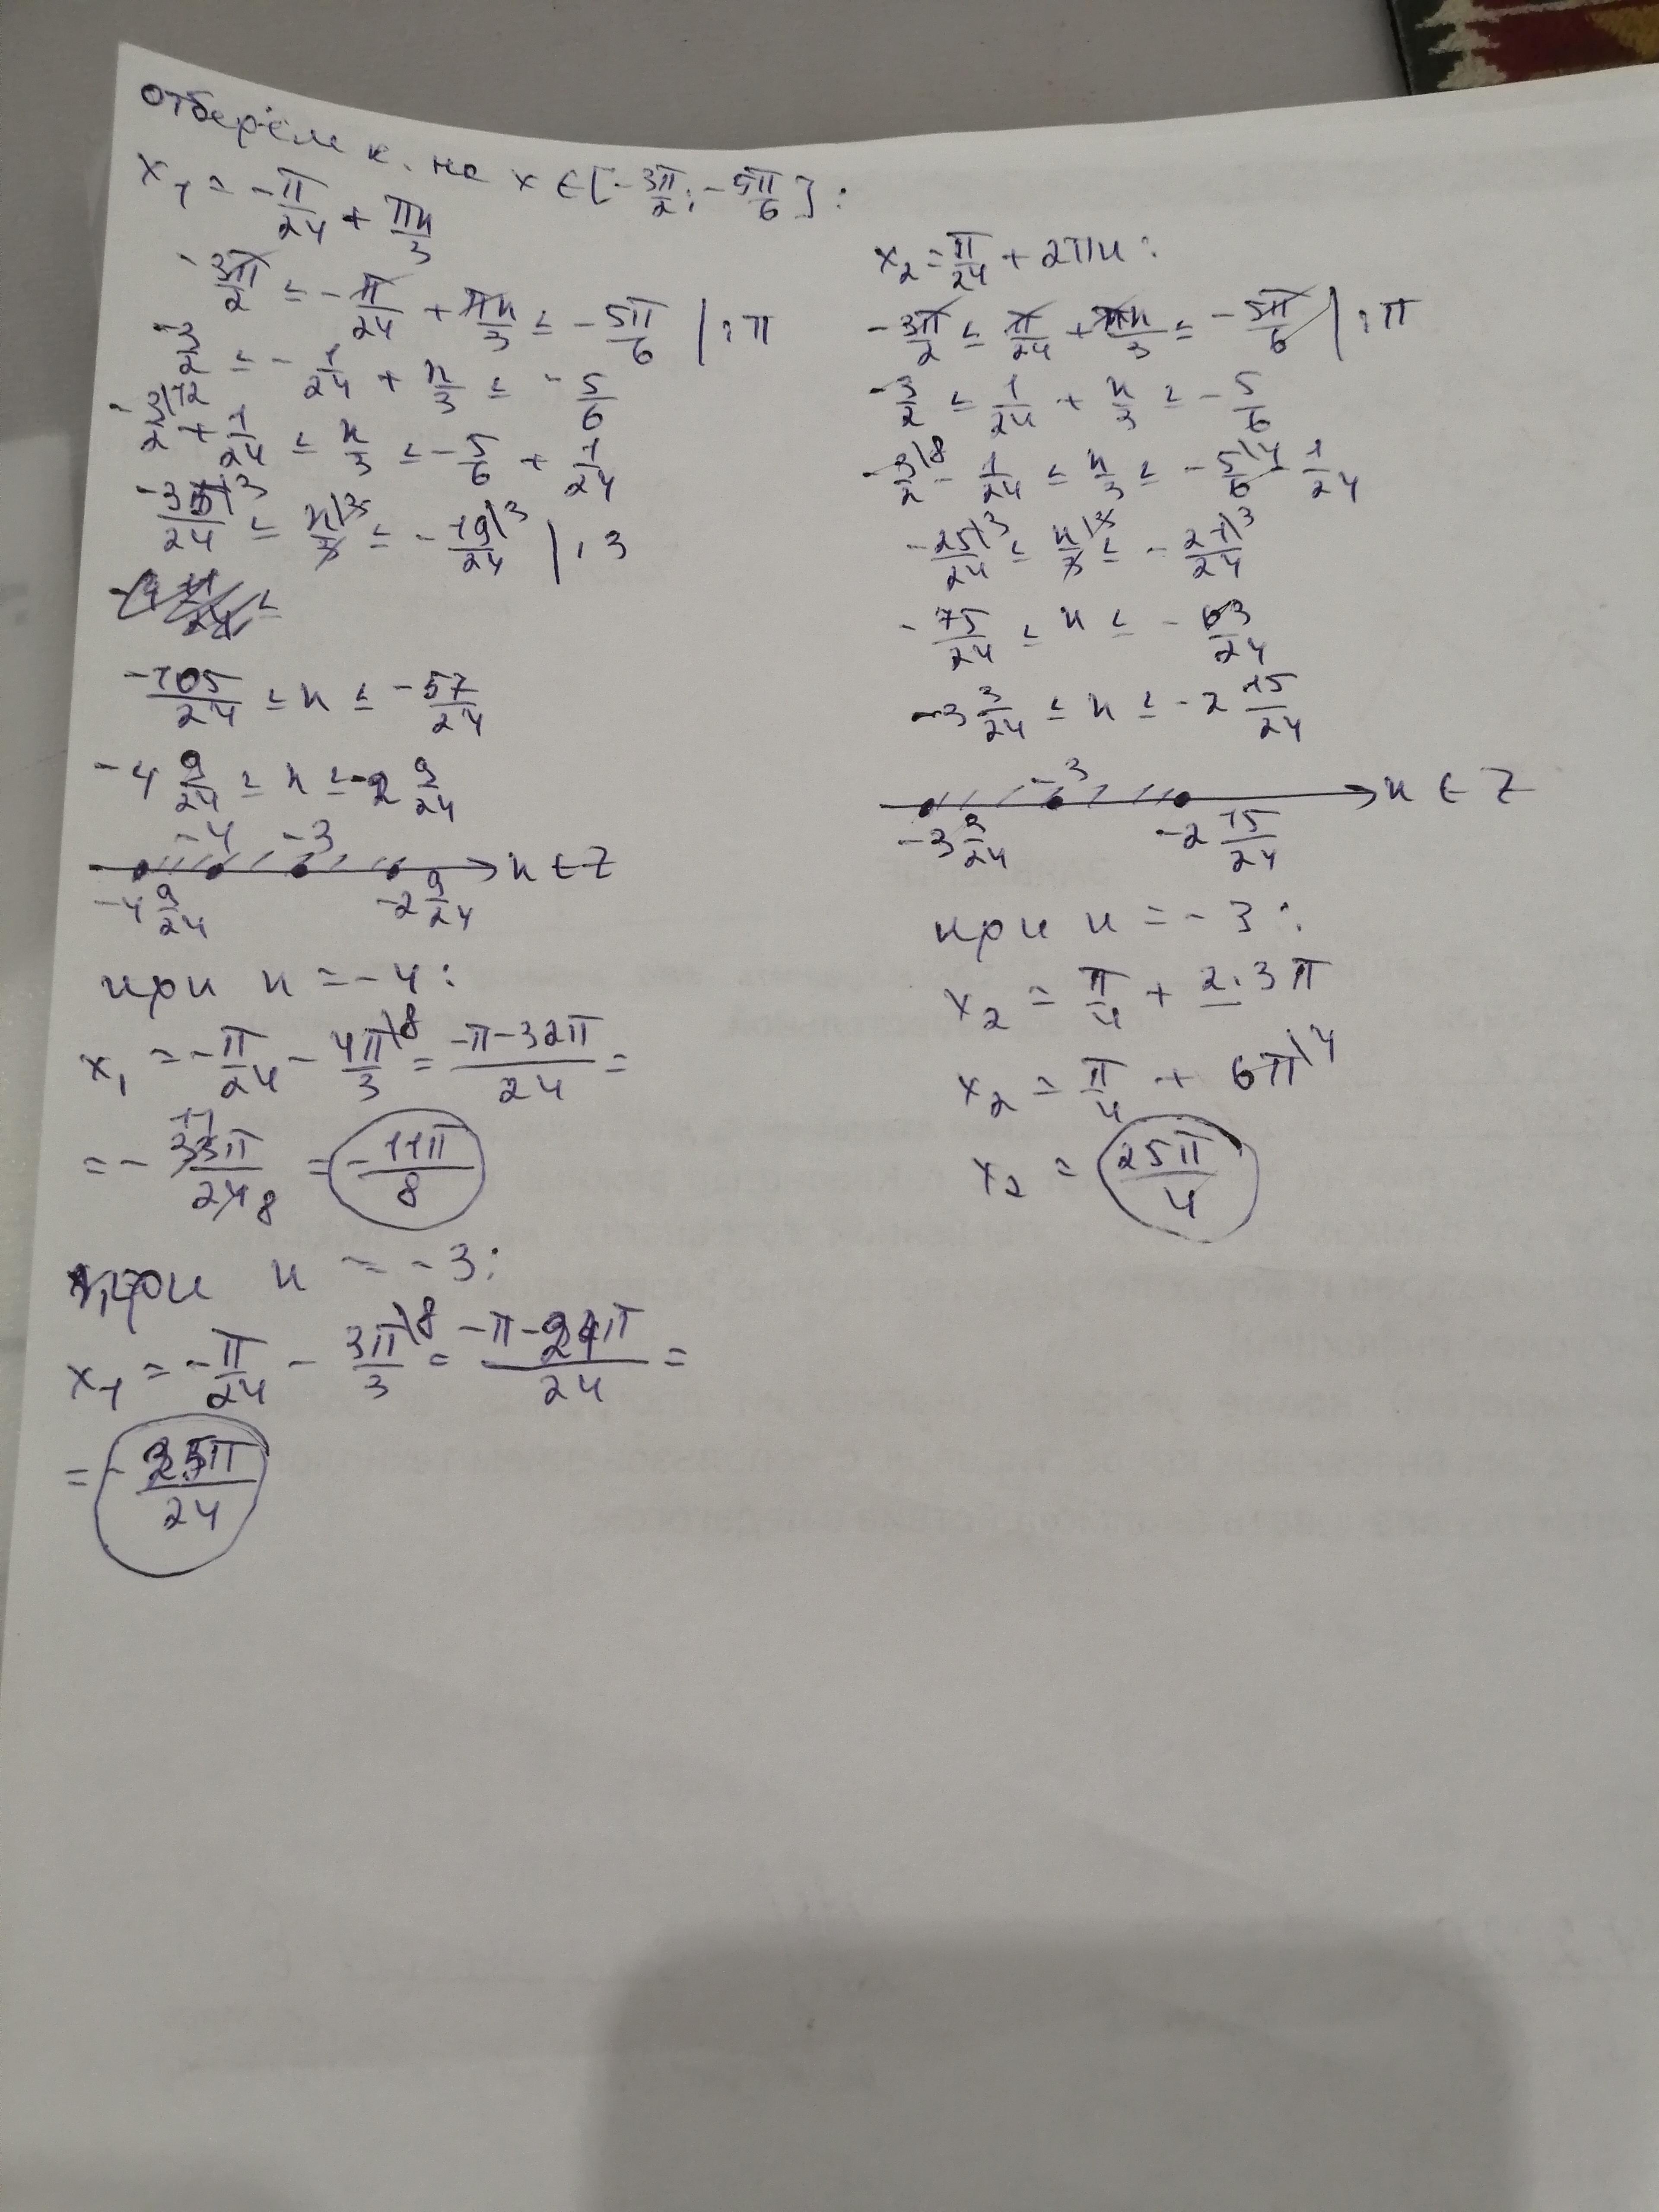 отберём к. на x ∈ [-3π/2; -5π/6]:
x₁ = -π/24 + πn/3
-3π/2 ≤ -π/24 + πn/3 ≤ -5π/6 | :π
-3/2 ≤ -1/24 + n/3 ≤ -5/6
-3\12/2 + 1/24 ≤ n/3 ≤ -5/6 + 1/24
-35\3/24 ≤ n\3/3 ≤ -19\3/24 | ·3
-105/24 ≤ n ≤ -57/24
-4 9/24 ≤ n ≤ -2 9/24
-4 -3
-4 9/24 -2 9/24 n ∈ Z
при n = -4:
x₁ = -π/24 - 4π\8/3 = -π-32π/24 =
= -33π/24 11 8 = -11π/8
при n = -3:
x₁ = -π/24 - 3π\8/3 = -π-24π/24 =
= -25π/24
x₂ = π/24 + 2πn:
-3π/2 ≤ π/24 + πn/3 ≤ -5π/6 | :π
-3/2 ≤ 1/24 + n/3 ≤ -5/6
-3\8/2 - 1/24 ≤ n/3 ≤ -5\4/6 - 1/24
-25\3/24 ≤ n\3/3 ≤ -21\3/24
-75/24 ≤ n ≤ -63/24
-3 3/24 ≤ n ≤ -2 15/24
-3
-3 3/24 -2 15/24 n ∈ Z
при n = -3:
x₂ = π/4 + 2·3π
x₂ = π/4 + 6π\4
x₂ = 25π/4